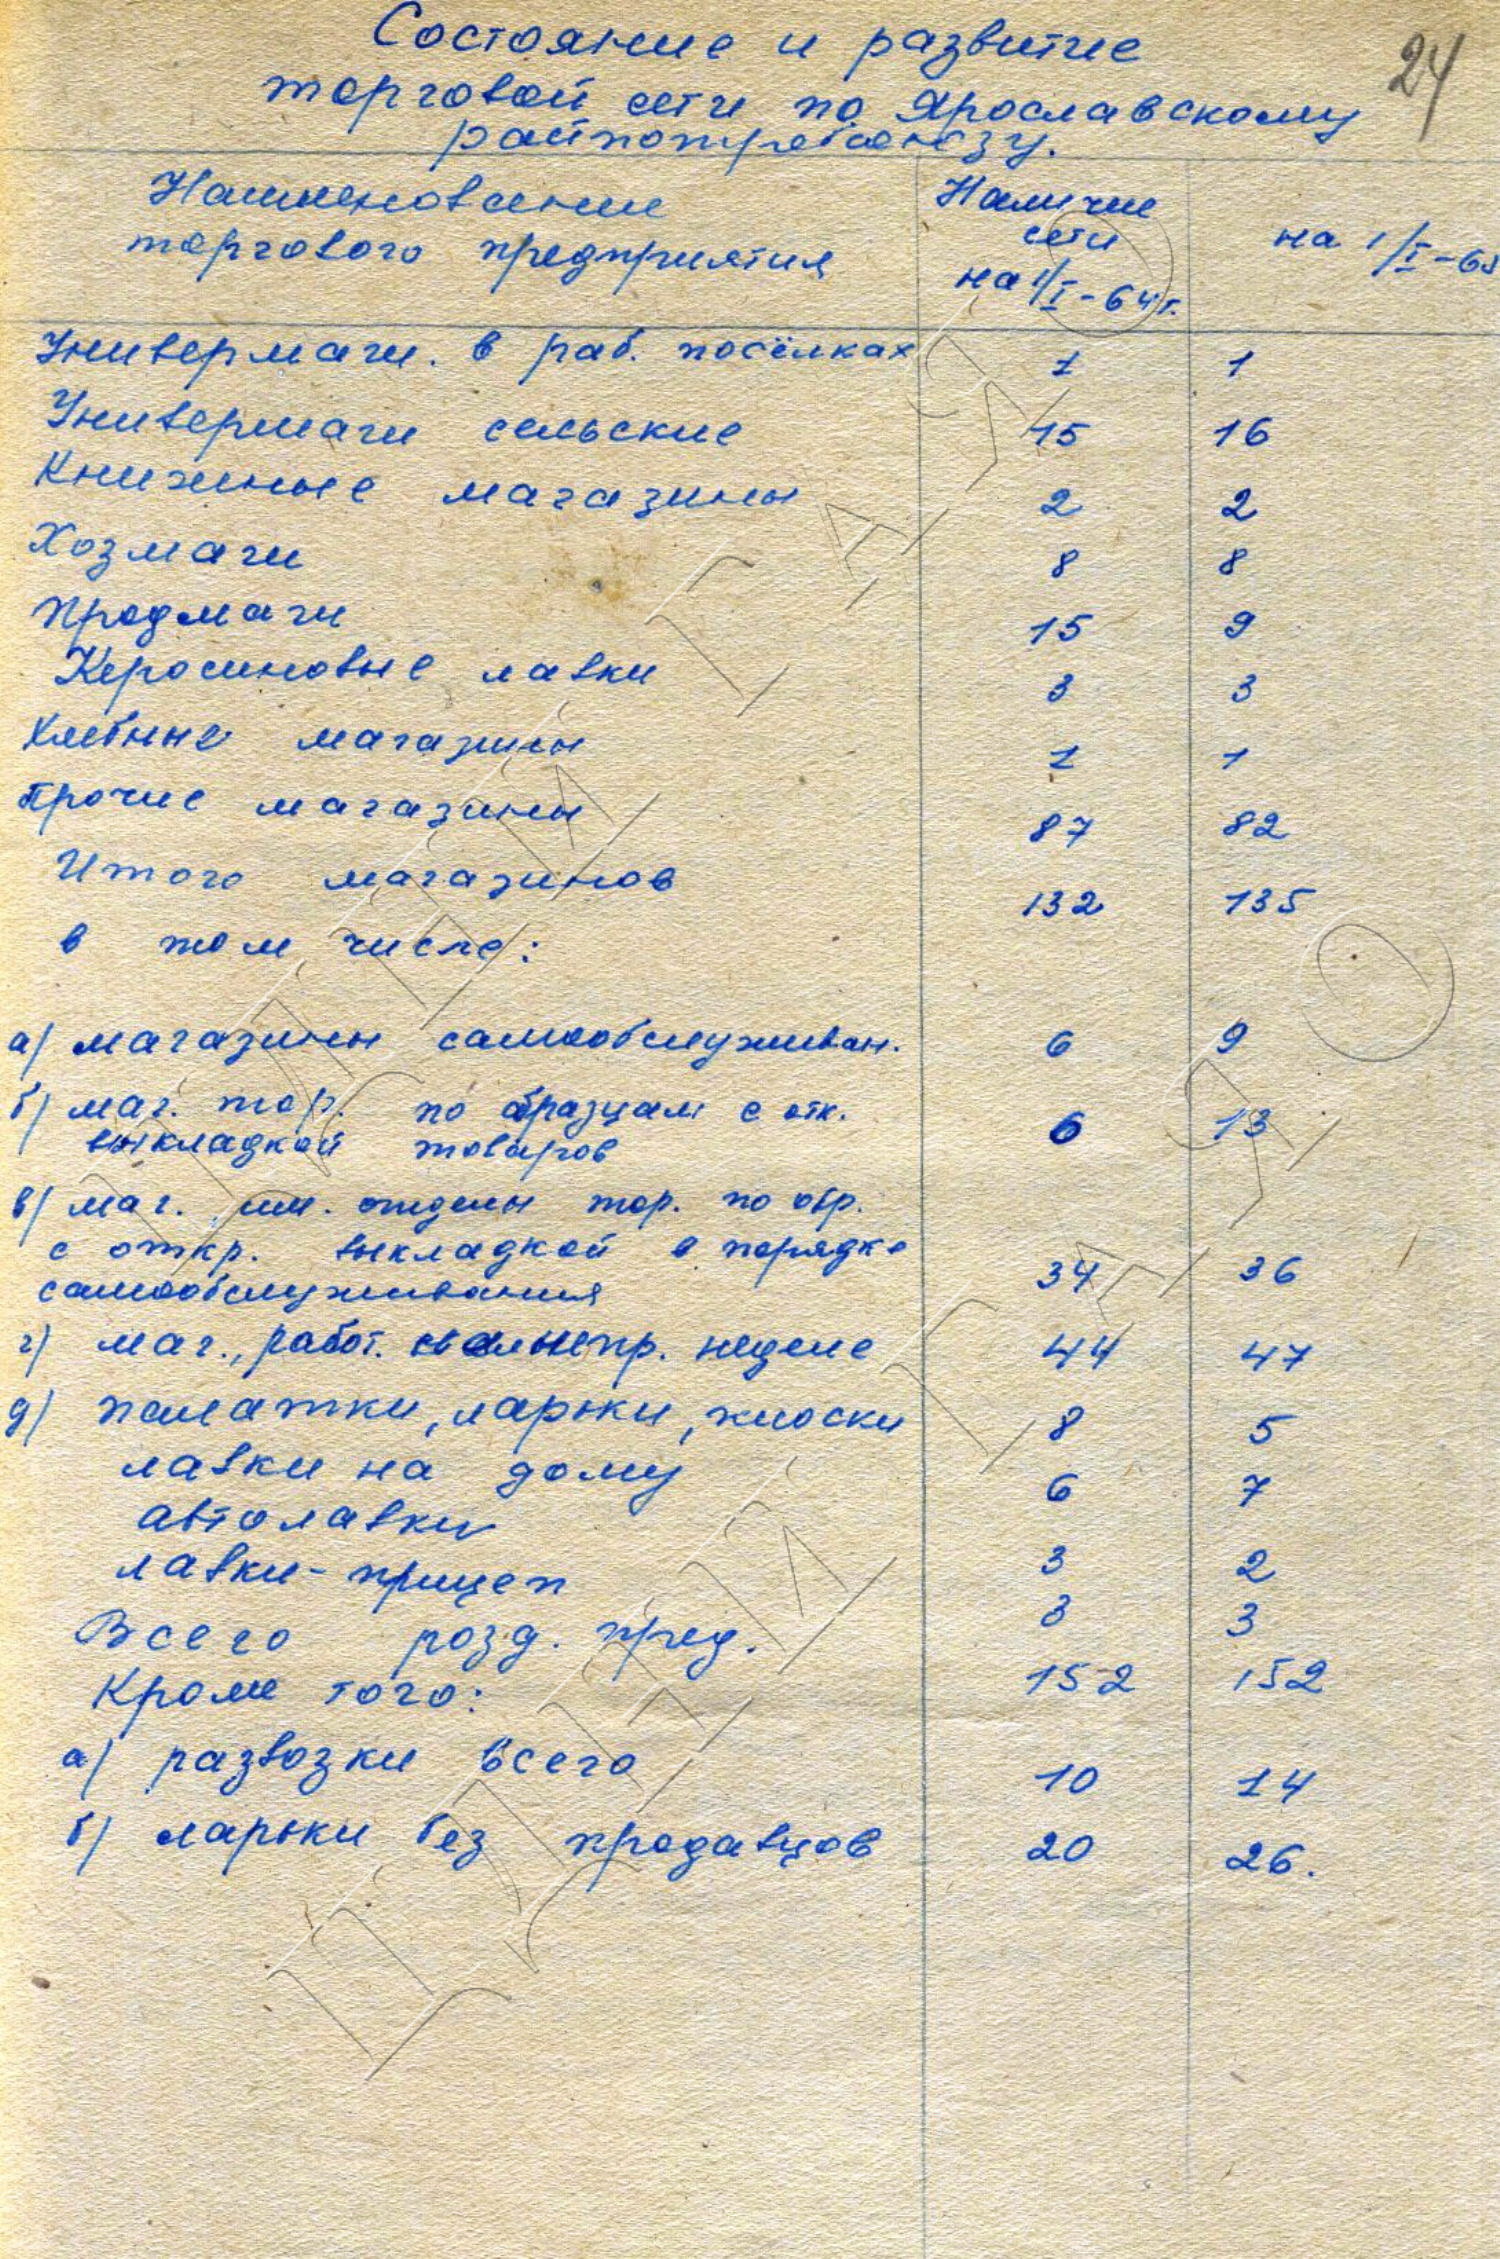 24
Состояние и развитие
торговой сети по Ярославскому
райпотребсоюзу.
Наименование
торгового предприятия
Наличие
сети
на 1/I-64 г.
на 1/I-65
Универмаги. в раб. посёлках 1 1
Универмаги сельские 15 16
Книжные магазины 2 2
Хозмаги 8 8
Продмаги 15 9
Керосиновые лавки 3 3
Хлебные магазины 1 1
Прочие магазины 87 82
Итого магазинов 132 135
в том числе:
а/ магазины самообслуживан. 6 9
б/ маг. тор. по образцам с отк.
выкладкой товаров 6 13
в/ маг. им. отделы тор. по обр.
с откр. выкладкой в порядке
самообслуживания 34 36
г) маг., работ. непр. неделе 44 47
д) палатки, ларьки, киоски 8 5
лавки на дому 6 7
автолавки 3 2
лавки-прицеп 3 3
Всего розд. пред. 152 152
Кроме того:
а/ развозки всего 10 14
б/ ларьки без продавцов 20 26.